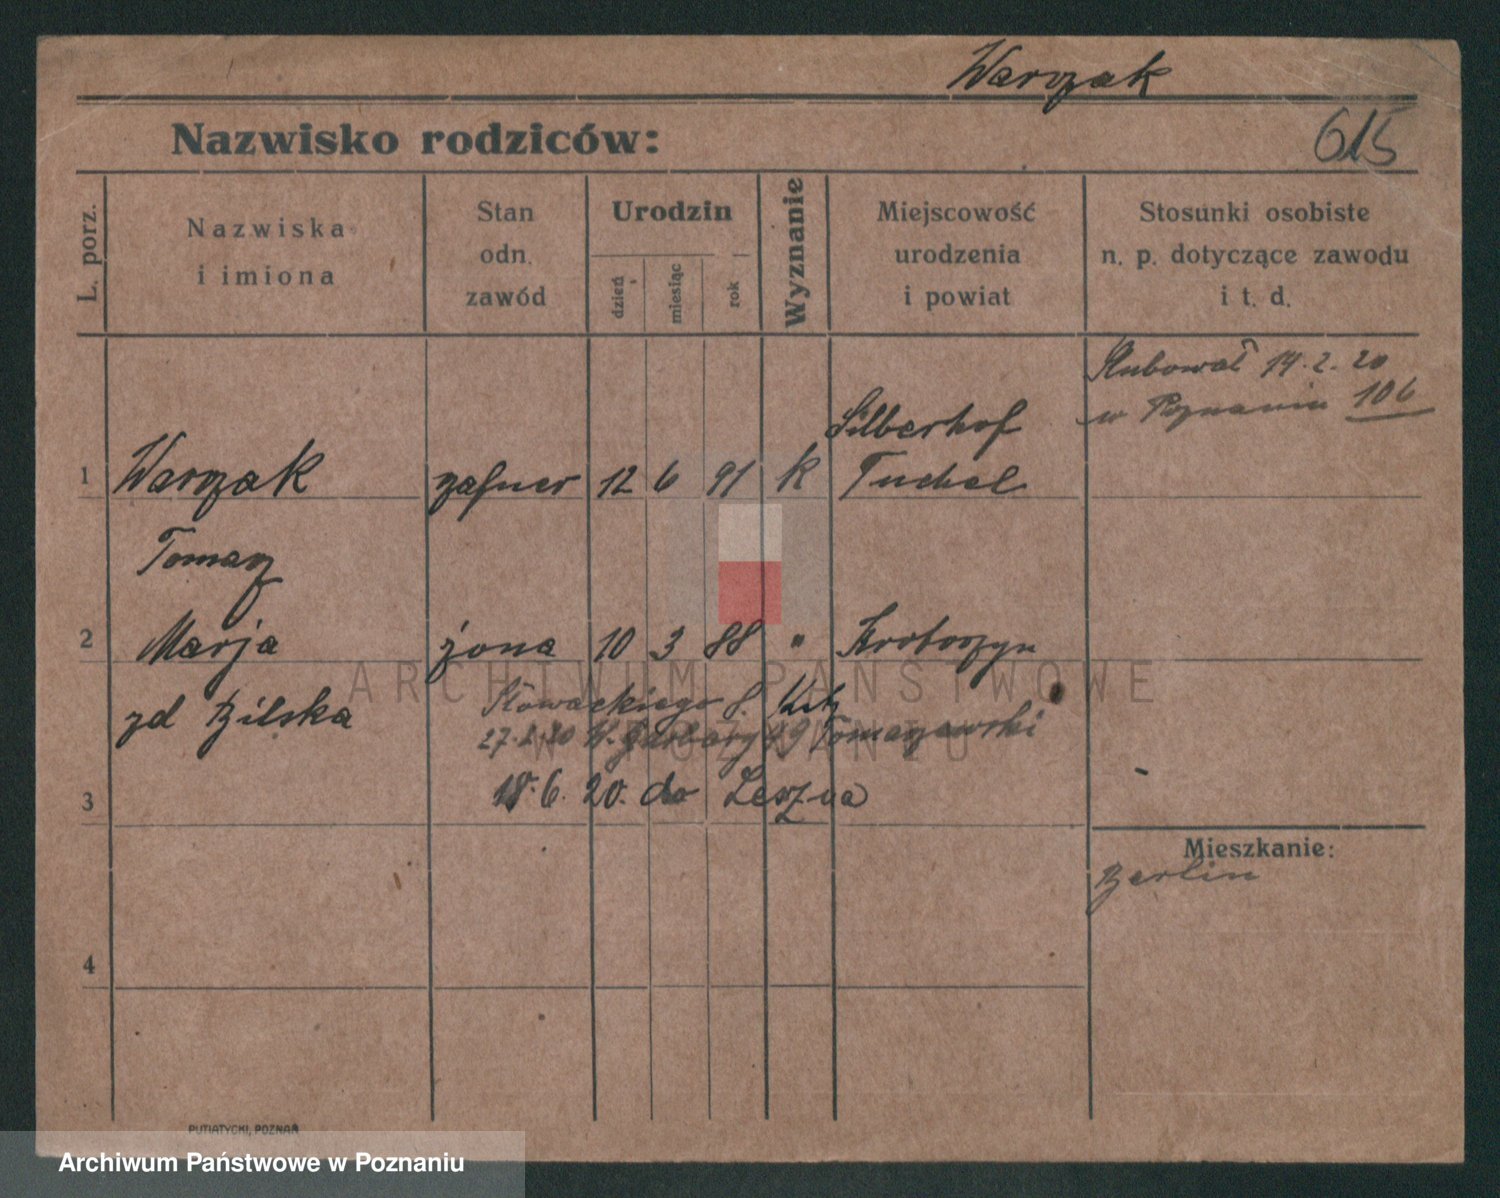 Warszak
Nazwisko rodziców:
615
L. porz.
Nazwiska
i imiona
Stan
odn.
zawód
Urodzin
dzień
miesiąc
rok
Wyznanie
Miejscowość
urodzenia
i powiat
Stosunki osobiste
n. p. dotyczące zawodu
i t. d.
Ślubował 14.2.20
w Poznaniu 106
Silberhof
1 Warszak 12 6 91 k Tuchel
Tomasz
2 Marja żona 10 3 88 " Krotoszyn
zd Bilska
Słowackiego 8.
27.2.20 W. Garbary 49 Tomaszewski
3 18.6.20. do Leszna
Mieszkanie:
Berlin
4
PUTIATYCKI, POZNAŃ
ARCHIWUM PAŃSTWOWE
W POZNANIU
Archiwum Państwowe w Poznaniu